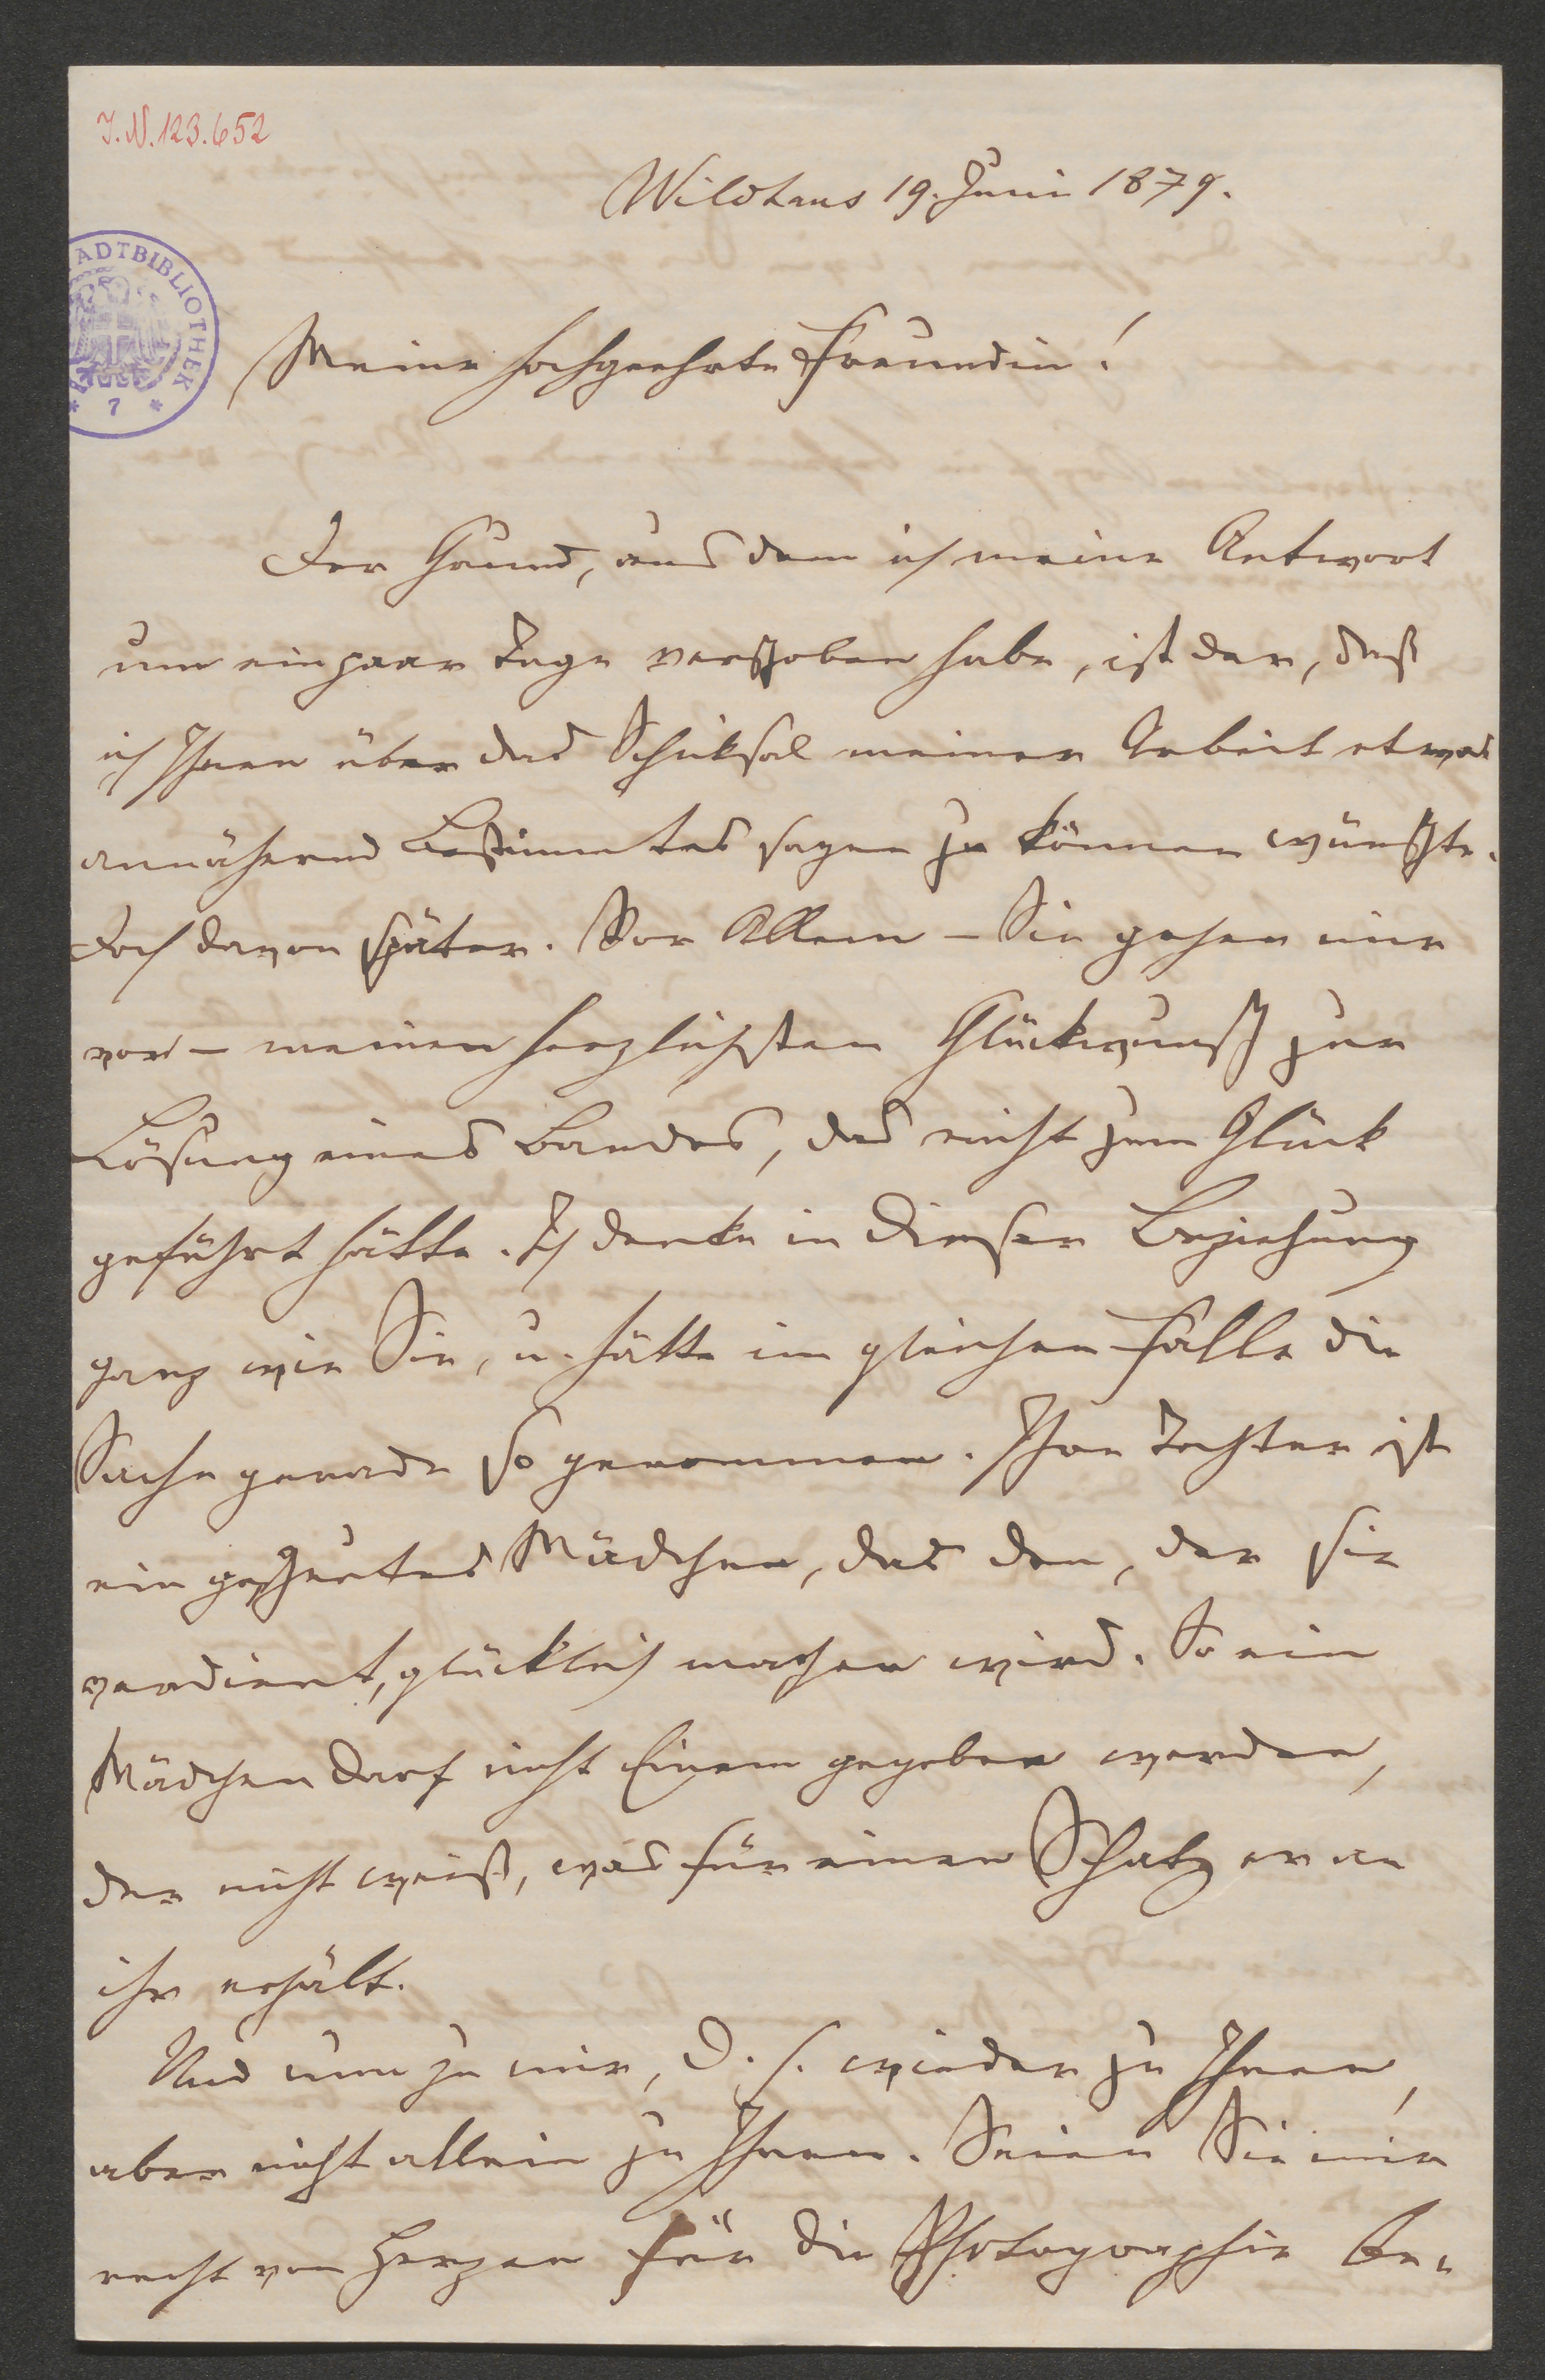 J.N. 123.652
Wildhaus 19. Juni 1879.
ADTBIBLIOTHEK
* 7 *
Meine hochgeehrte Freundin!
Der Grund, aus dem ich meine Antwort
um ein paar Tage verschoben habe, ist der, daß
ich Ihnen über das Schicksal meiner Arbeit etwas
annähernd Bestimmtes sagen zu können wünschte.
Doch davon später. Vor Allem – Sie gehen mir
vor – meinen herzlichsten Glückwunsch zur
Lösung eines Bandes, das nicht zum Glück
geführt hätte. Ich denke in dieser Beziehung
ganz wie Sie, u. hätte im gleichen Falle die
Sache gerade so genommen. Ihre Tochter ist
ein gescheutes Mädchen, das den, der sie
verdient, glücklich machen wird. So ein
Mädchen darf nicht Einem gegeben werden,
der nicht weiß, was für einen Schatz er an
ihr erhält.
Und nun zu mir, d. h. wieder zu Ihnen,
aber nicht allein zu Ihnen. Seien Sie mir
recht von Herzen für die Photographie be-